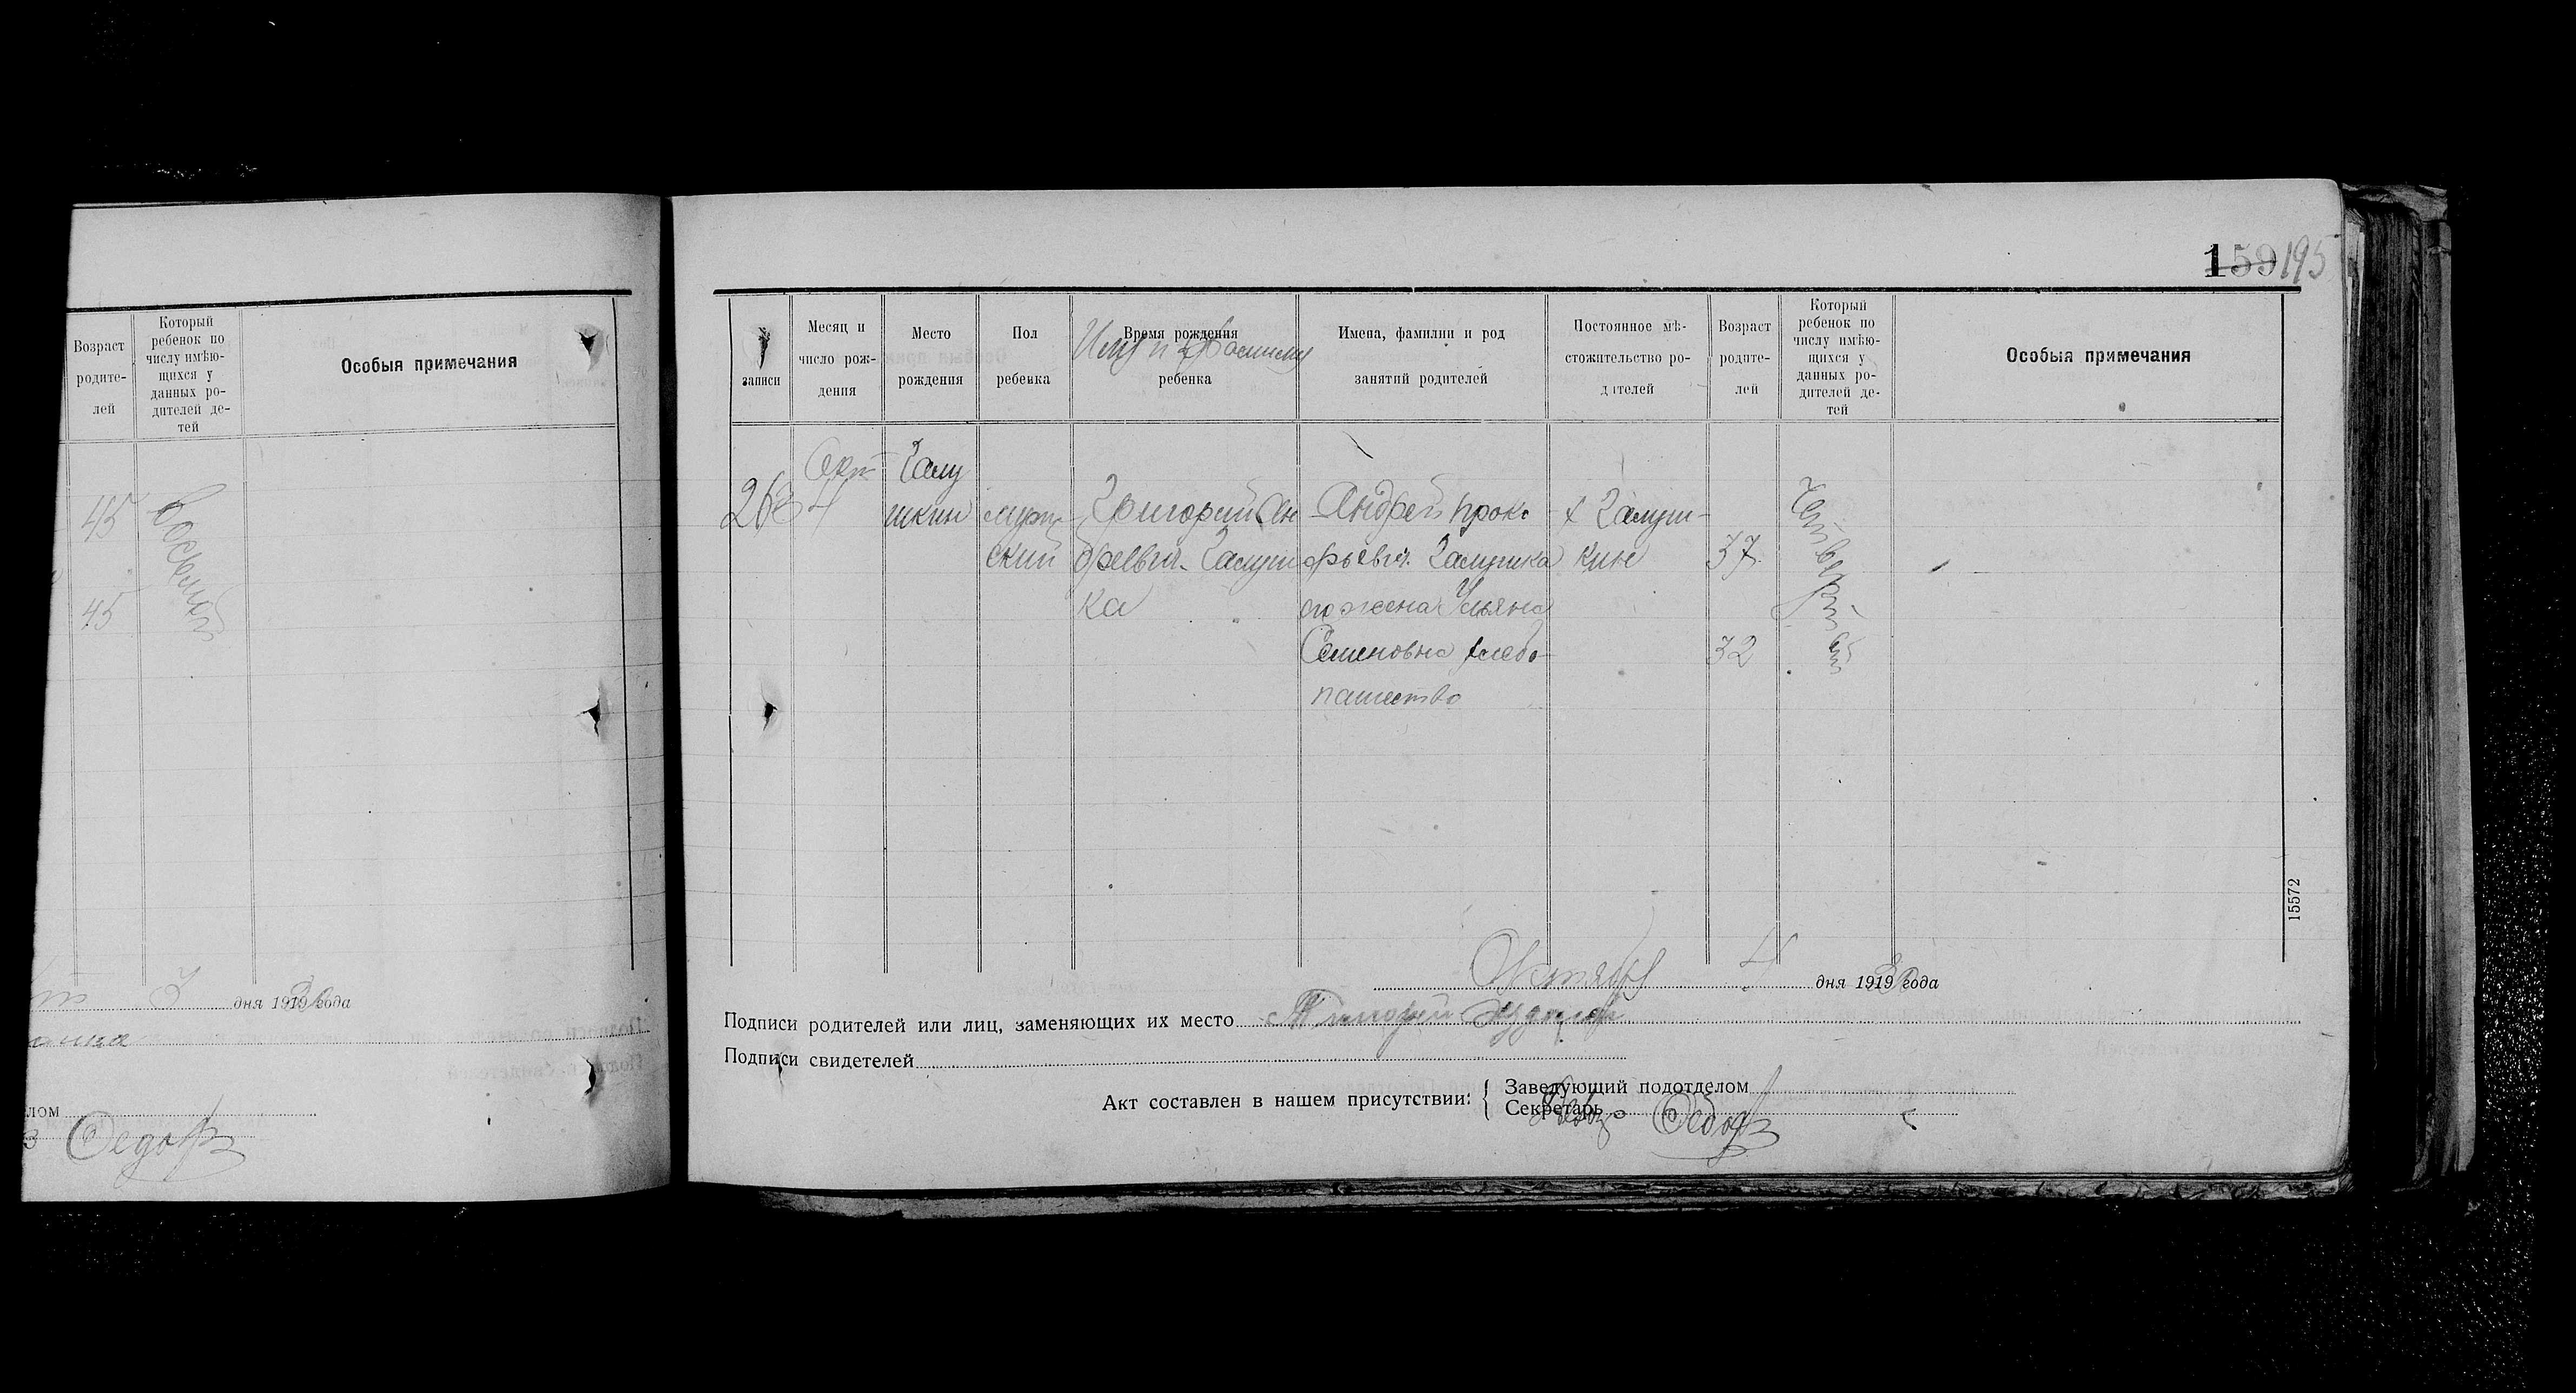 Возраст
родите-
лей
Который
ребенок по
числу имѣю-
щихся у
данных ро-
дителей де-
тей
Особыя примечания
45
45
восьмой
3 дня 1919 года
лом
Федор
159 195
записи
Месяц и
число рож-
дения
Место
рождения
Пол
ребенка
Время рождения
Имя и фамилия
ребенка
Имена, фамилии и род
занятий родителей
Постоянное мѣ-
стожительство ро-
дителей
Возраст
родите-
лей
Который
ребенок по
числу имѣю-
щихся у
данных ро-
дителей де-
тей
Особыя примечания
Окт Галу
4 шкин мущ Григорий Ан Андрей Проко х Галуш
ский дреевич Галуш фьевич Галушка кин 37
ка его жена Ульяна
Семеновна хлебо 32
пашество
четвертый
15572
Октября 4 дня 1919 года
Подписи родителей или лиц, заменяющих их место
Подписи свидетелей
Акт составлен в нашем присутствии:
Заведующий подотделом
Секретарь
Федор